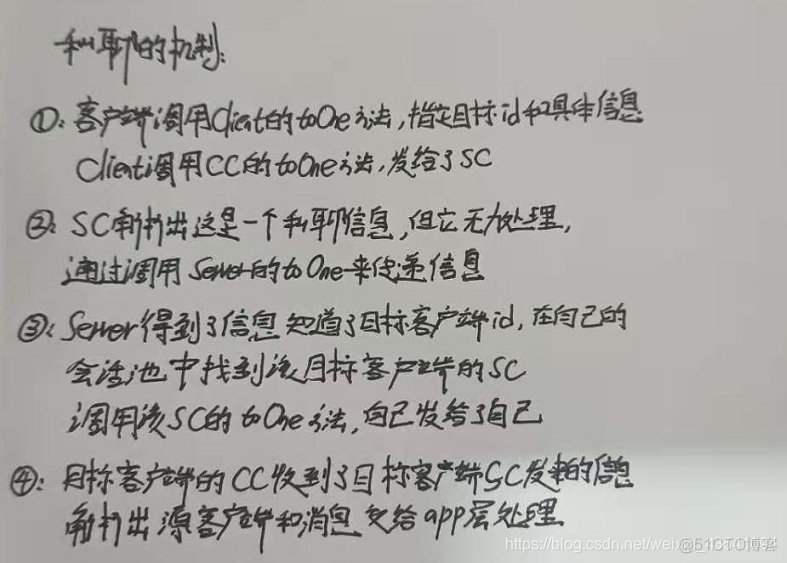 私聊的机制:
①: 客户端调用Client的toOne方法,指定目标id和具体信息
Client调用CC的toOne方法,发给了SC
②: SC解析出这是一个私聊信息,但它无力处理,
通过调用Server的toOne来传递信息
③: Server得到了信息 知道了目标客户端id, 在自己的
会话池中找到该目标客户端的SC
调用该SC的toOne方法,自己发给了自己
④: 目标客户端的CC收到了目标客户端SC发来的信息
解析出源客户端和消息 交给app层处理
https://blog.csdn.net/weixin_
@51CTO博客